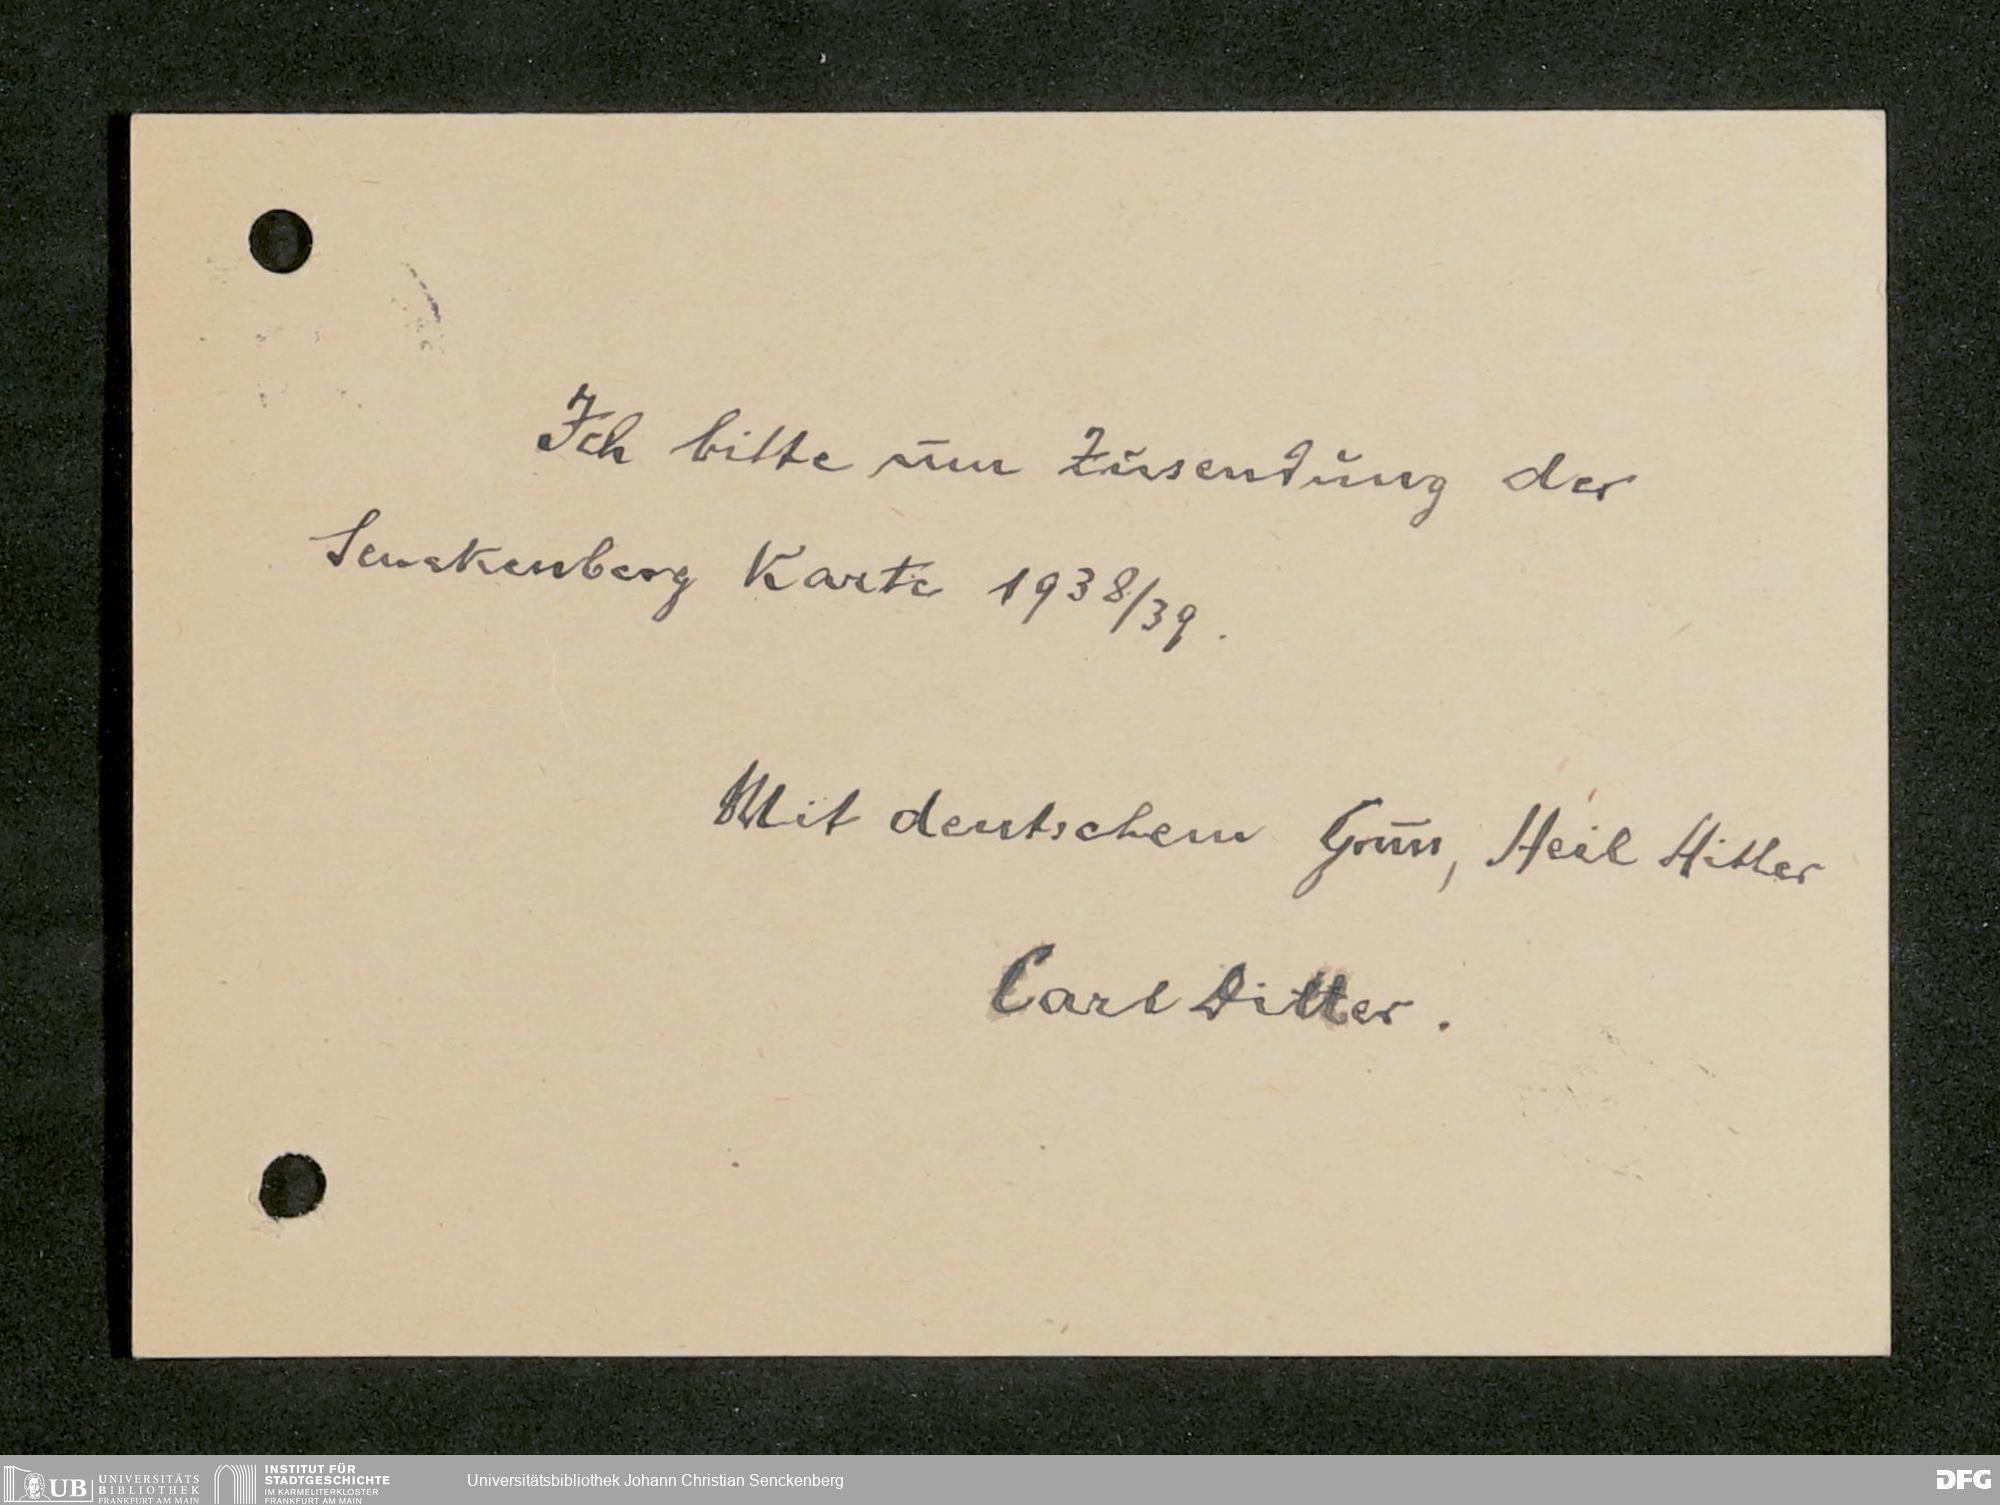 Ich bitte um Zusendung der
Senckenberg Karte 1938/39.
Mit deutschem Gruss, Heil Hitler
Carl Ditter.
UB UNIVERSITÄTS
BIBLIOTHEK
FRANKFURT AM MAIN
INSTITUT FÜR
STADTGESCHICHTE
IM KARMELITERKLOSTER
FRANKFURT AM MAIN
Universitätsbibliothek Johann Christian Senckenberg
DFG